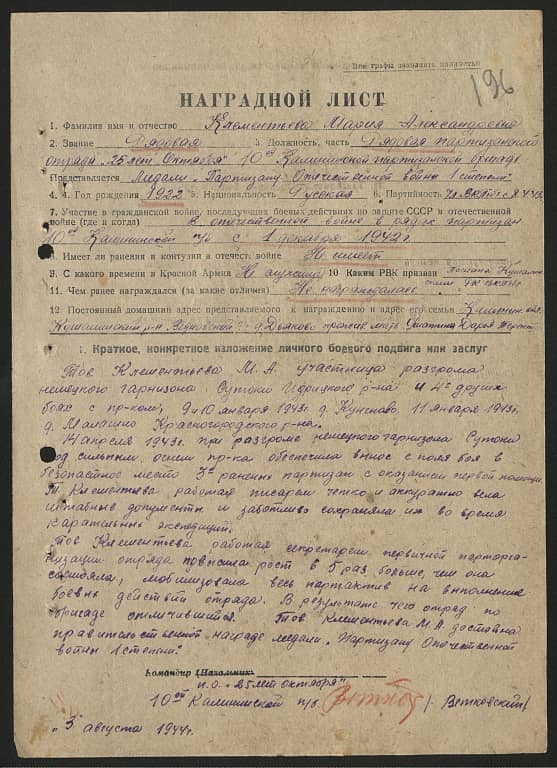 Все графы заполнять полностью
196
НАГРАДНОЙ ЛИСТ
1. Фамилия имя и отчество Клементьева Мария Александровна
2. Звание Рядовая 3. Должность, часть Рядовая партизанской
отряда "25 лет Октября" 10ой Калининской партизанской бригады
Представляется Медали "Партизану Отечественной войны 1 степени"
4. Год рождения 1922 5. Национальность Русская 6. Партийность
7. Участие в гражданской войне, последующих боевых действиях по защите СССР и отечественной
войне (где и когда) В отечественной войне в рядах партизан
10ой Калининской п/б с 1 декабря 1942 г.
8. Имеет ли ранения и контузии в отечест. войне Не имеет
9. С какого времени в Красной Армии Не служила 10 Каким РВК призван
11. Чем ранее награждался (за какие отличия) Не награждалась
12 Постоянный домашний адрес представляемого к награждению и адрес его семьи
Кушалинский р-н д. Дьяково прожив. мать Дарья
1. Краткое, конкретное изложение личного боевого подвига или заслуг
Тов Клементьева М. А. участница разгрома
немецкого гарнизона Сутоки Идрицкого р-на и 4х других
боях с пр-ком; 9 и 10 января 1943г. д. 11 января 1943г.
д. Красногородского р-на.
14 апреля 1943г. при разгроме немецкого гарнизона Сутоки
под сильным огнем пр-ка обеспечила вынос с поля боя в
безопастное место 3х раненых партизан с оказанием первой помощи
Т. Клементьева работая писарем четко и аккуратно вела
штабные документы и заботливо сохраняла их во время
карательных экспедиций.
Тов Клементьева работая секретарем первичной парторга-
низации отряда повысила рост в 5 раз больше, чем она
мобилизовала весь партактив на выполнение
боевых действий отряда. В результате чего отряд по
бригаде отличившийся. Тов Клементьева М. А. достойна
правительственной награде медали "Партизану Отечественной
войны 1 степени".
Командир (Начальник
п.о. "25 лет октября"
10ой Калининской п/б /Ветковский/
"3" августа 1944г.